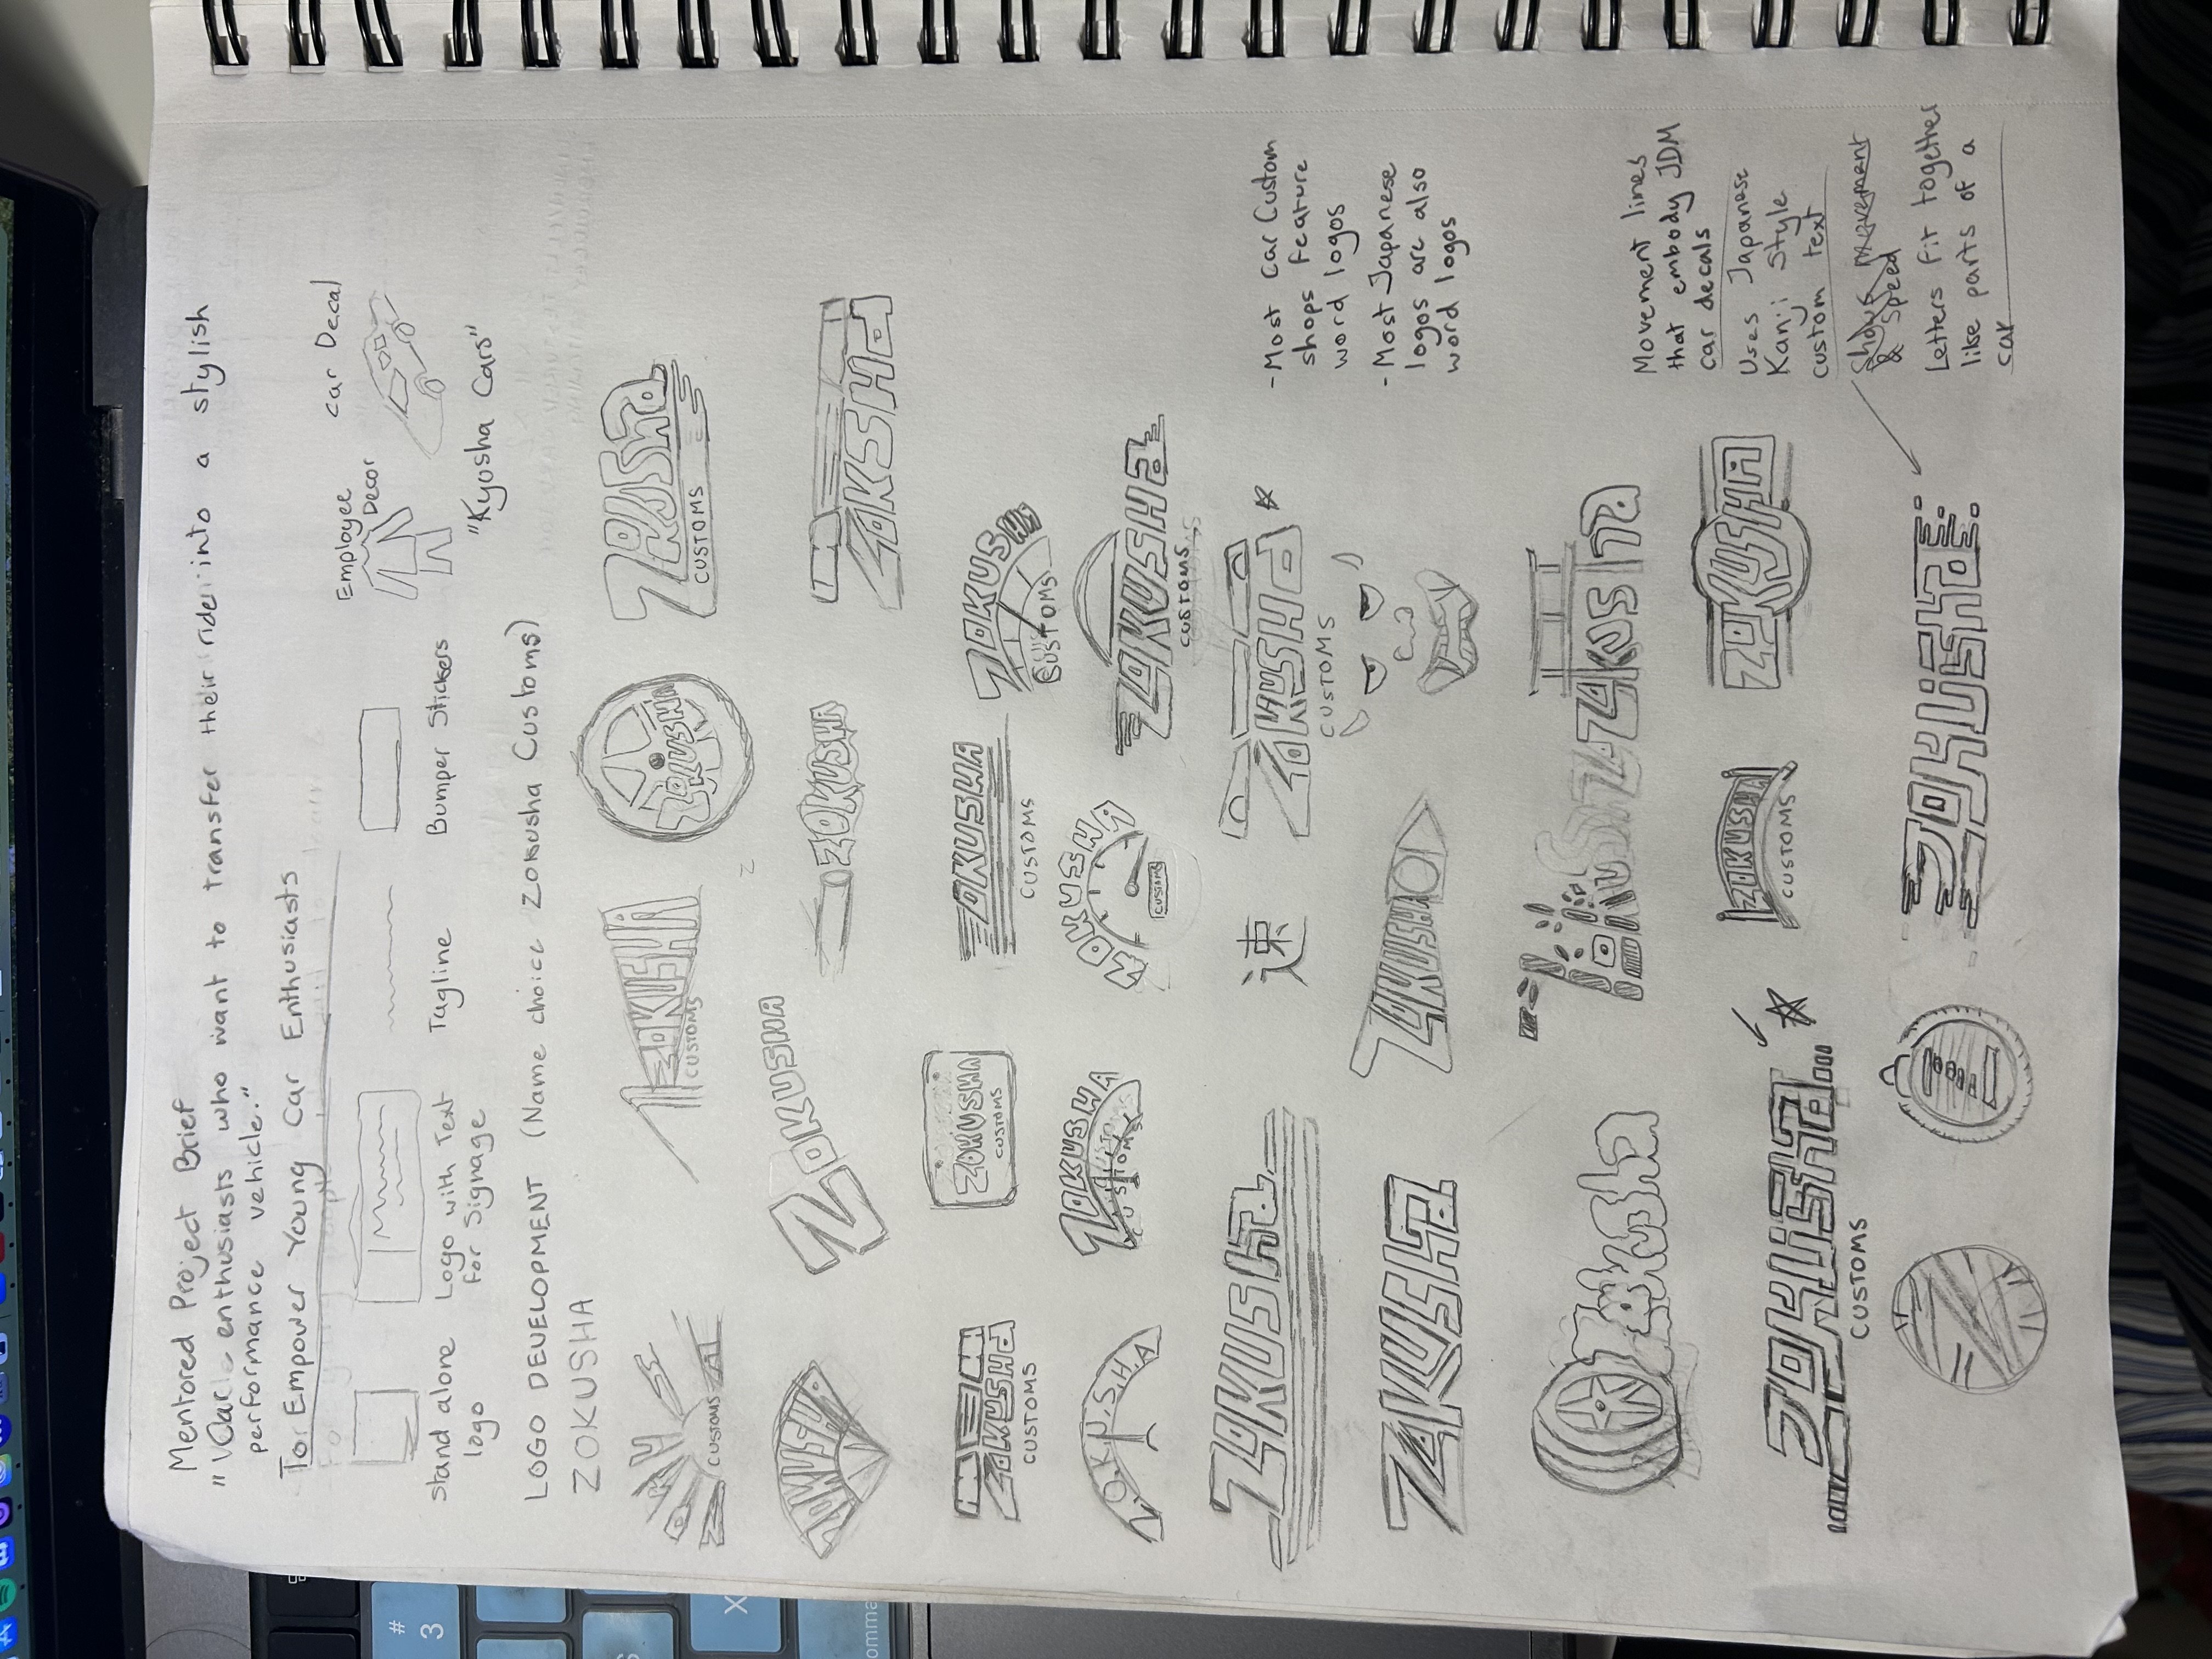 Mentored Project Brief
"Car enthusiasts who want to transfer their ride into a stylish
performance vehicle."
To Empower Young Car Enthusiasts
Stand alone
logo
Logo with Text
for Signage
Tagline
Bumper Stickers
Employee
Decor
car Decal
"Kyusha Cars"
LOGO DEVELOPMENT (Name choice Zokusha Customs)
ZOKUSHA
ZOKUSHA
CUSTOMS
ZOKUSHA
CUSTOMS
ZOKUSHA
ZOKUSHa
CUSTOMS
Z
ZOKUSHA
ZOKUSHA
ZOKUSHA
ZOKSHa
ZOKUSHa
CUSTOMS
ZOKUSHA
CUSTOMS
ZOKUSHA
CUSTOMS
ZOKUSHA
CUSTOMS
Z.O.K.U.S.H.A
ZOKUSHA
CUSTOMS
ZOKUSHA
CUSTOMS
ZOKUSHa
CUSTOMS
ZOKUSHa
速
ZOKUSHa
CUSTOMS
- Most car Custom
shops feature
word logos
- Most Japanese
logos are also
word logos
ZOKUSHa
ZOKUSHA
Zokusha
ZOKU
ZOKUSHa
Movement lines
that embody JDM
car decals
Uses Japanese
Kanji Style
custom text
Shows movement
& Speed
Letters fit together
like parts of a
car
ZOKUSHa
CUSTOMS
ZOKUSHA
CUSTOMS
ZOKUSHA
Z
ZOKUSHa
#
3
X